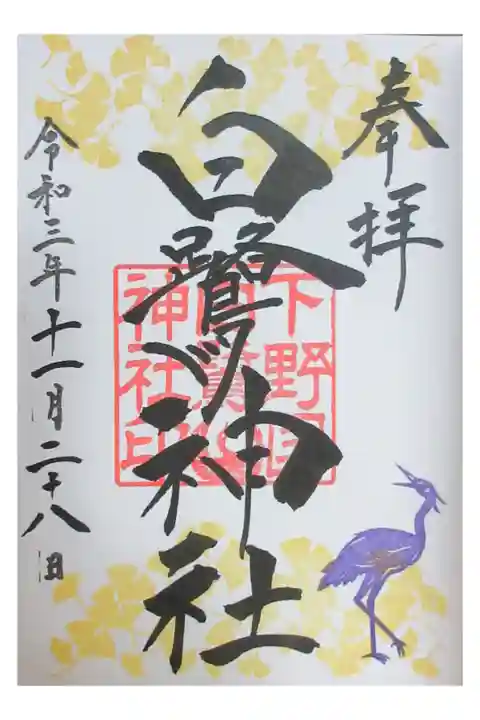 奉拝
白鷺神社
令和三年十一月二十八日
下野國
神社印